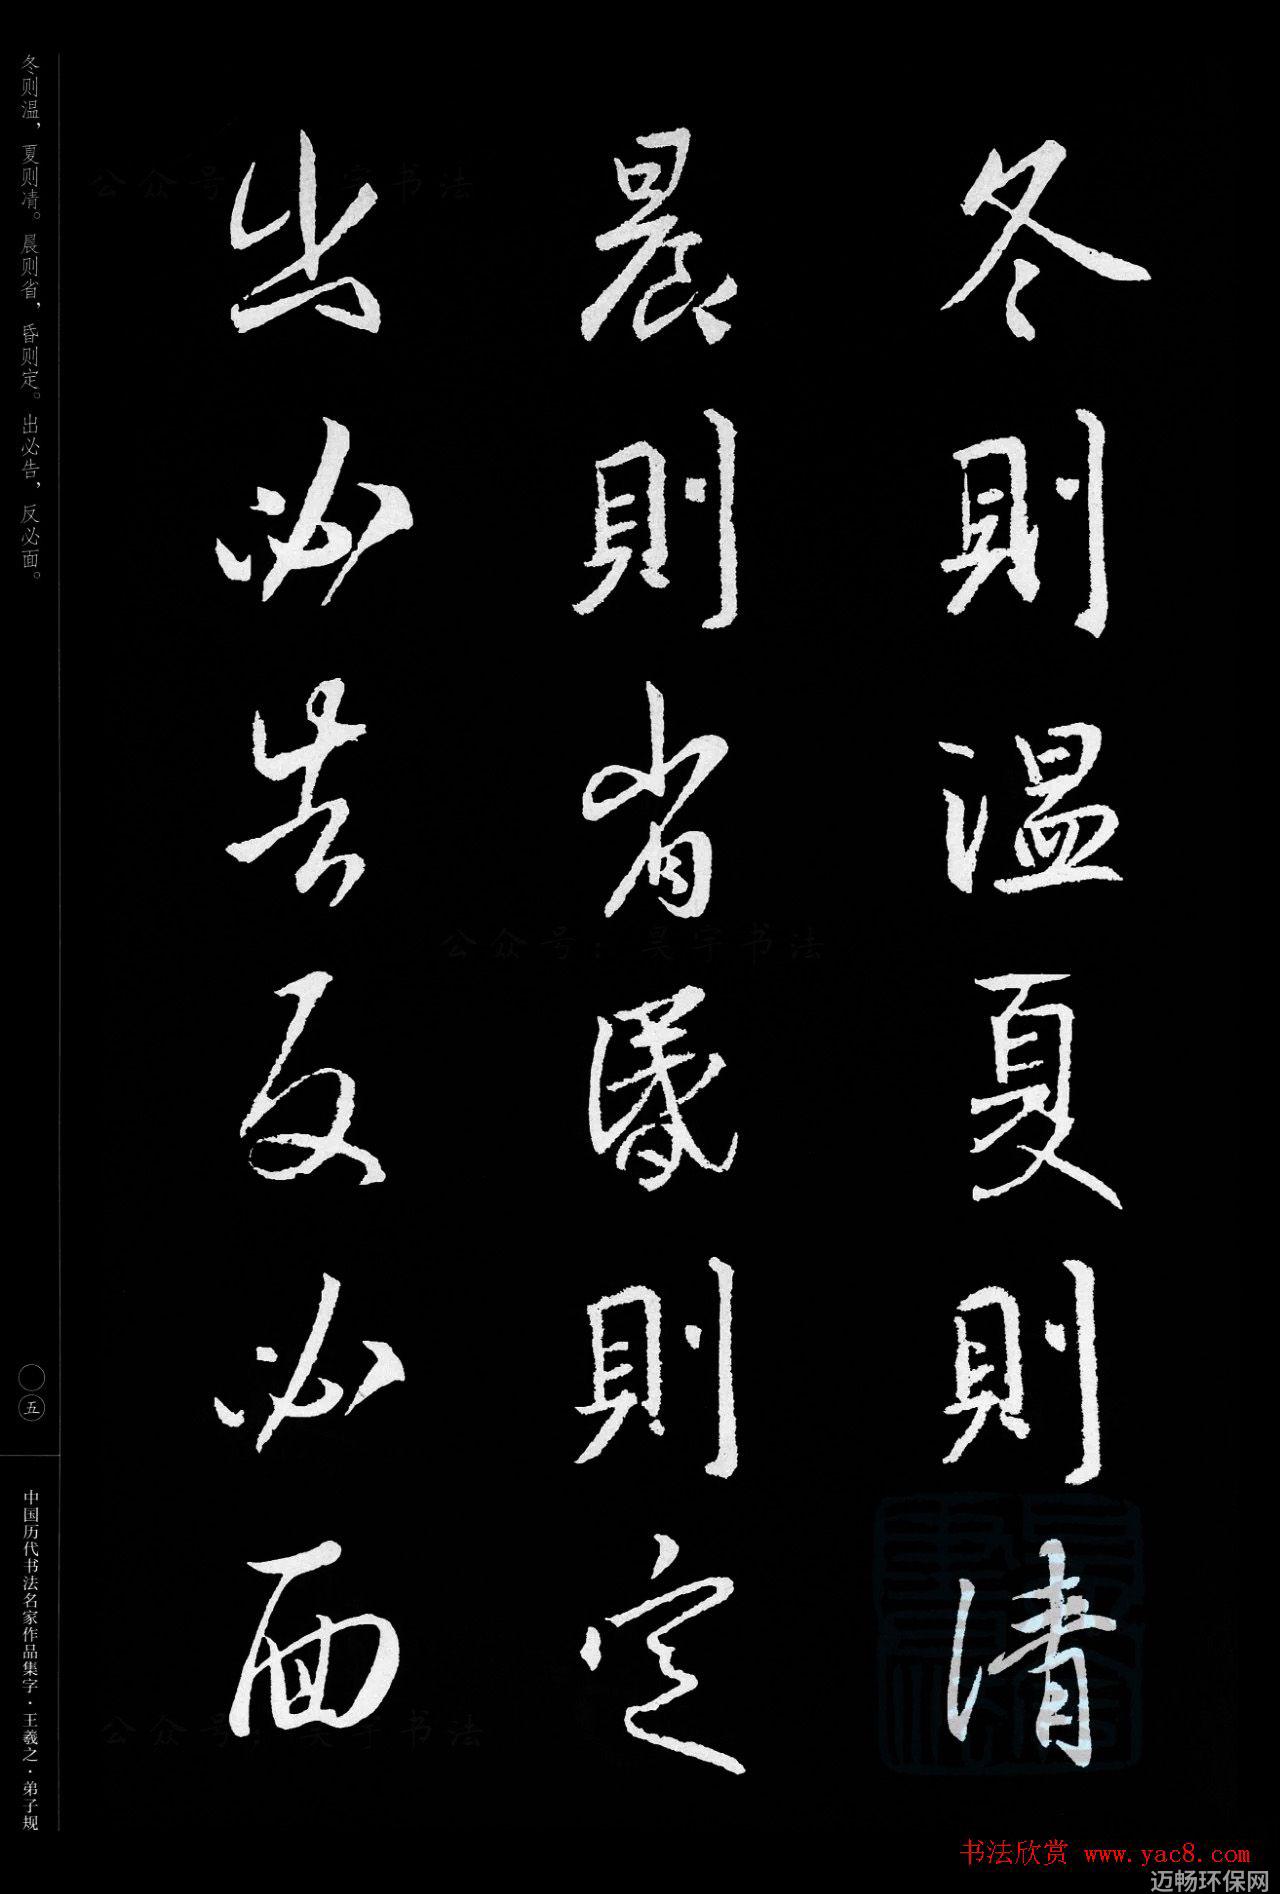 冬則温夏則凊
晨則省昬則定
出必告反必面
冬则温，夏则凊。晨则省，昏则定。出必告，反必面。
〇五
中国历代书法名家作品集字·王羲之·弟子规
公众号：昊宇书法
公众号：昊宇书法
公众号：昊宇书法
书法欣赏 www.yac8.com
迈畅环保网